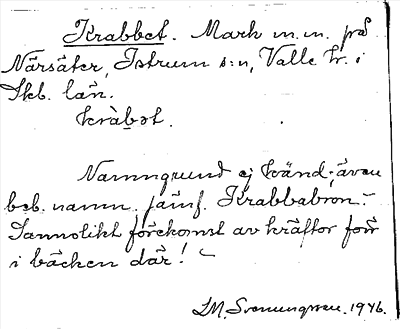 Krabbet. Mark m.m. på
Närsäter, Istrum s:n, Valle hr. i
Skb. län.
kràbət.
Namngrund ej känd; även
beb. namn. jämf. Krabbabron. –
Sannolikt förekomst av kräftor förr
i bäcken där!
LM. Svenungsson. 1946.